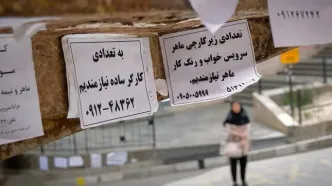 ۰۹۱۲۶۷۲۶۲
به تعدادی
کارگر ساده نیازمندیم
۰۹۱۲-۴۸۳۶۲
تعدادی زیر کارچی ماهر
سرویس خواب و رنگ کار
ماهر نیازمندیم.
۰۹۰۵۰۰۵۹۹۹